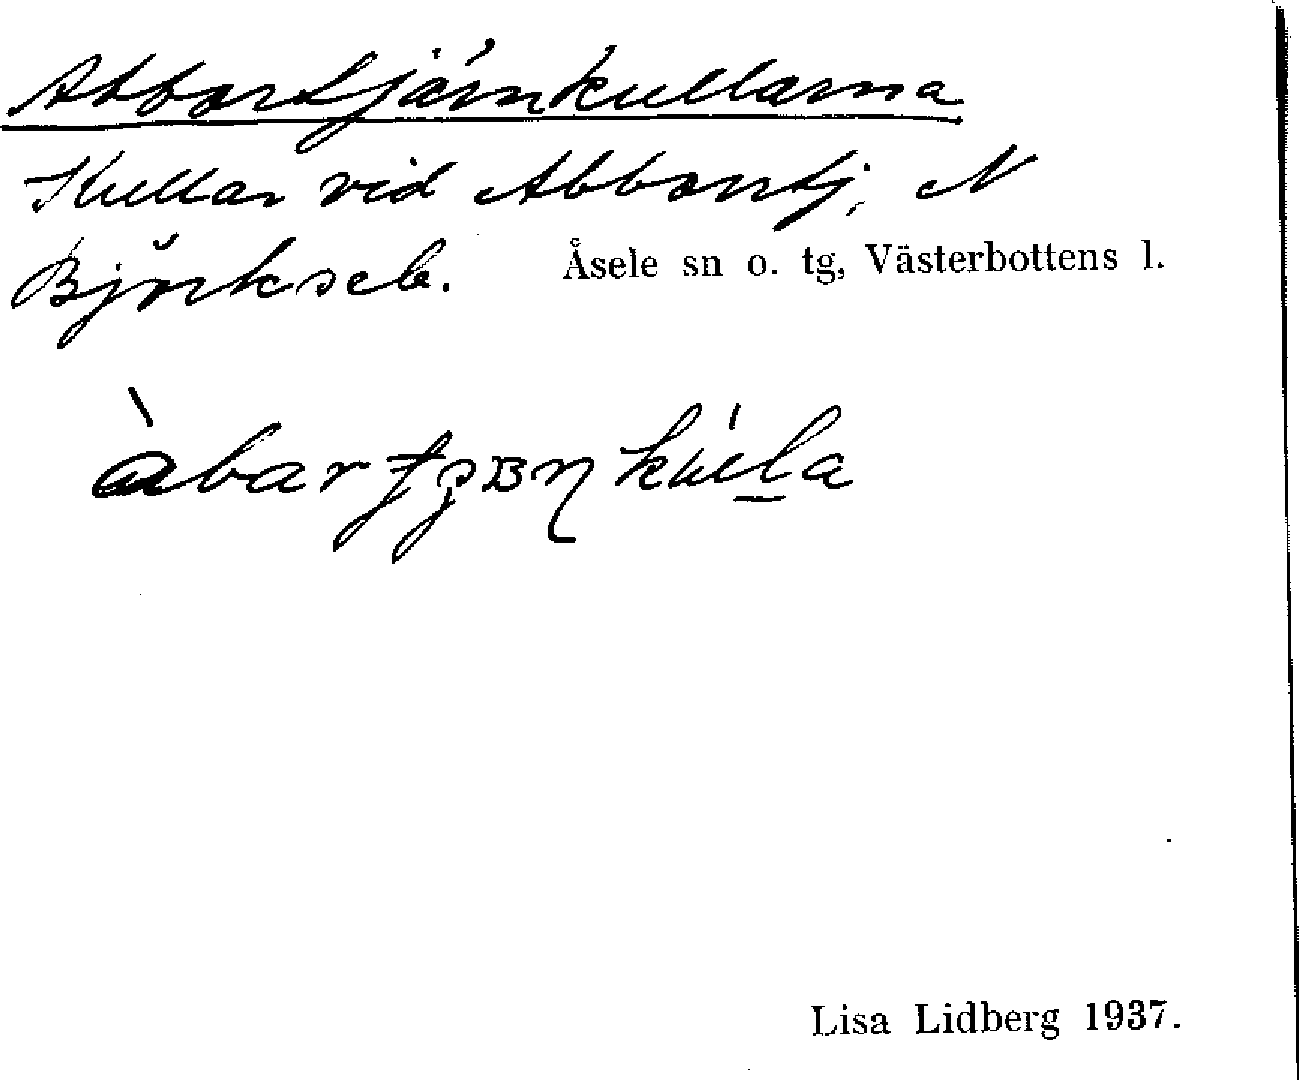 Abbortjärnkullarna
Kullar vid Abbortj. N
Björksele. Åsele sn o. tg, Västerbottens l.
Lisa Lidberg 1937.